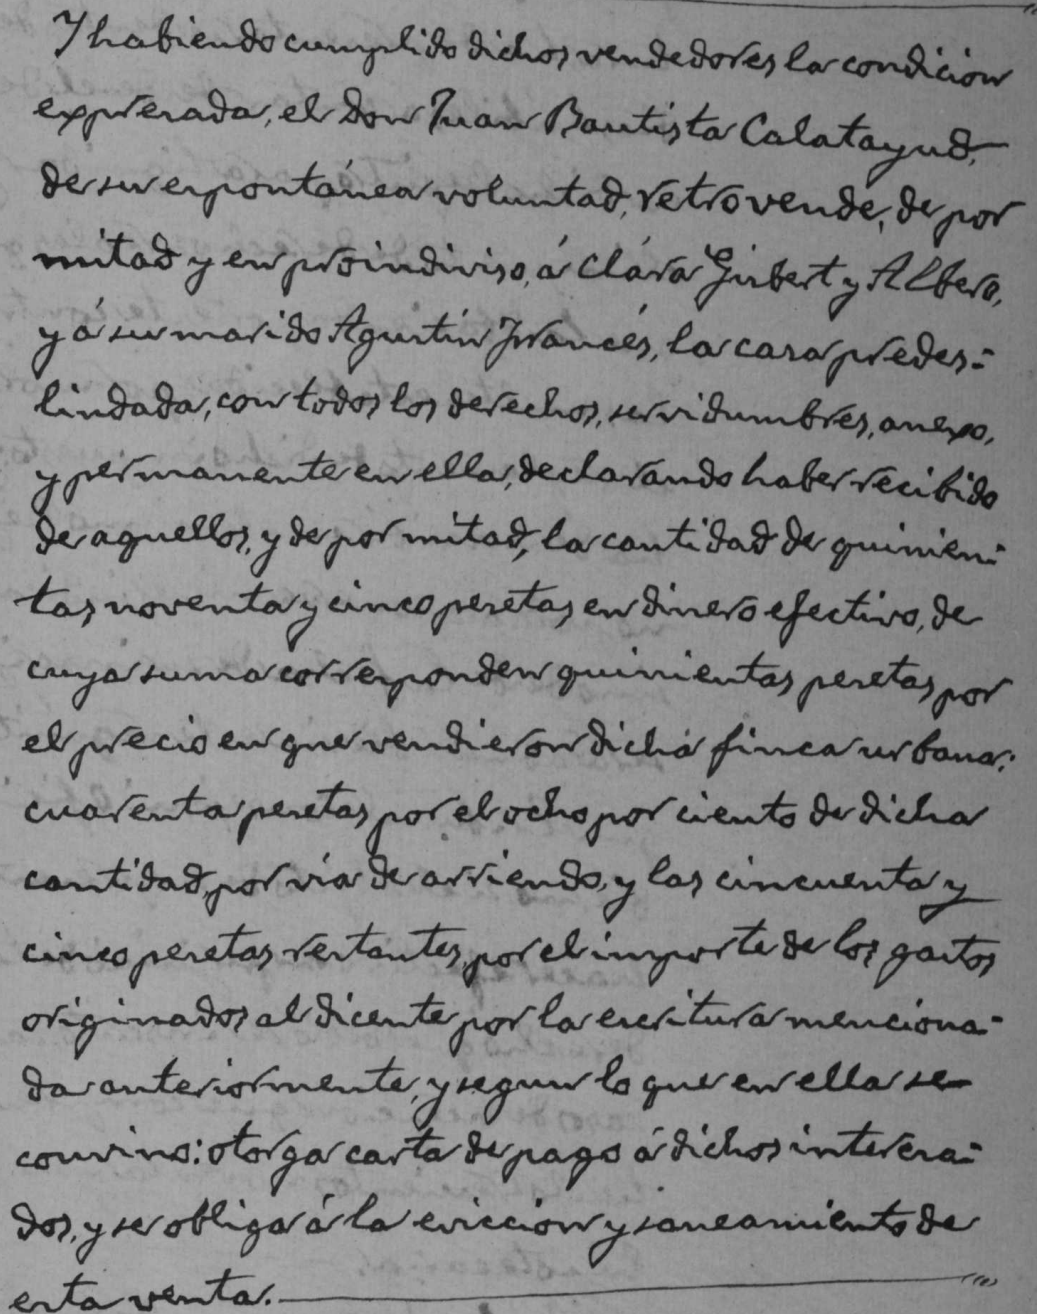 Y habiendo cumplido dichos vendedores la condición
expresada, el Don Juan Bautista Calatayud,
de su espontánea voluntad, retrovende, de por
mitad y en proindiviso, á Clara Gisbert y Albero,
y á su marido Agustín Francés, la casa predes-
lindada, con todos los derechos, servidumbres, anexo,
y permanente en ella, declarando haber recibido
de aquellos, y de por mitad, la cantidad de quinien-
tas noventa y cinco pesetas, en dinero efectivo, de
cuya suma corresponden quinientas pesetas por
el precio en que vendieron dicha finca urbana:
cuarenta pesetas por el ocho por ciento de dicha
cantidad, por vía de arriendo, y las cincuenta y
cinco pesetas restantes, por el importe de los gastos
originados al dicente por la escritura menciona-
da anteriormente, y segun lo que en ella se
convino: otorga carta de pago á dichos interesa-
dos, y se obliga á la evicción y saneamiento de
esta venta.